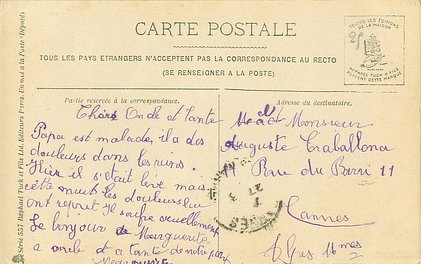 CARTE POSTALE
TOUS LES PAYS ETRANGERS N'ACCEPTENT PAS LA CORRESPONDANCE AU RECTO
(SE RENSEIGNER A LA POSTE)
TOUTES LES ÉDITIONS
DE LA MAISON
RAPHAEL TUCK & FILS
PORTENT CETTE MARQUE
Partie réservée à la correspondance.
Chère Oncle et Tante
Papa est malade, il a des
douleurs dans les reins.
Hier il s'était levé mais
cette nuit les douleurs lui
ont repris il souffre cruellement
Le bonjour de Marguerite
a oncle et a tante de notre part
Marguerite
Adresse du destinataire.
Monsieur
Auguste Traballona
Rue du Barri 11
Cannes
Alpes Mmes
Série 557 Raphael Tuck et Fils Ltd. Editeurs Paris. En mot à la Poste (Déposé)